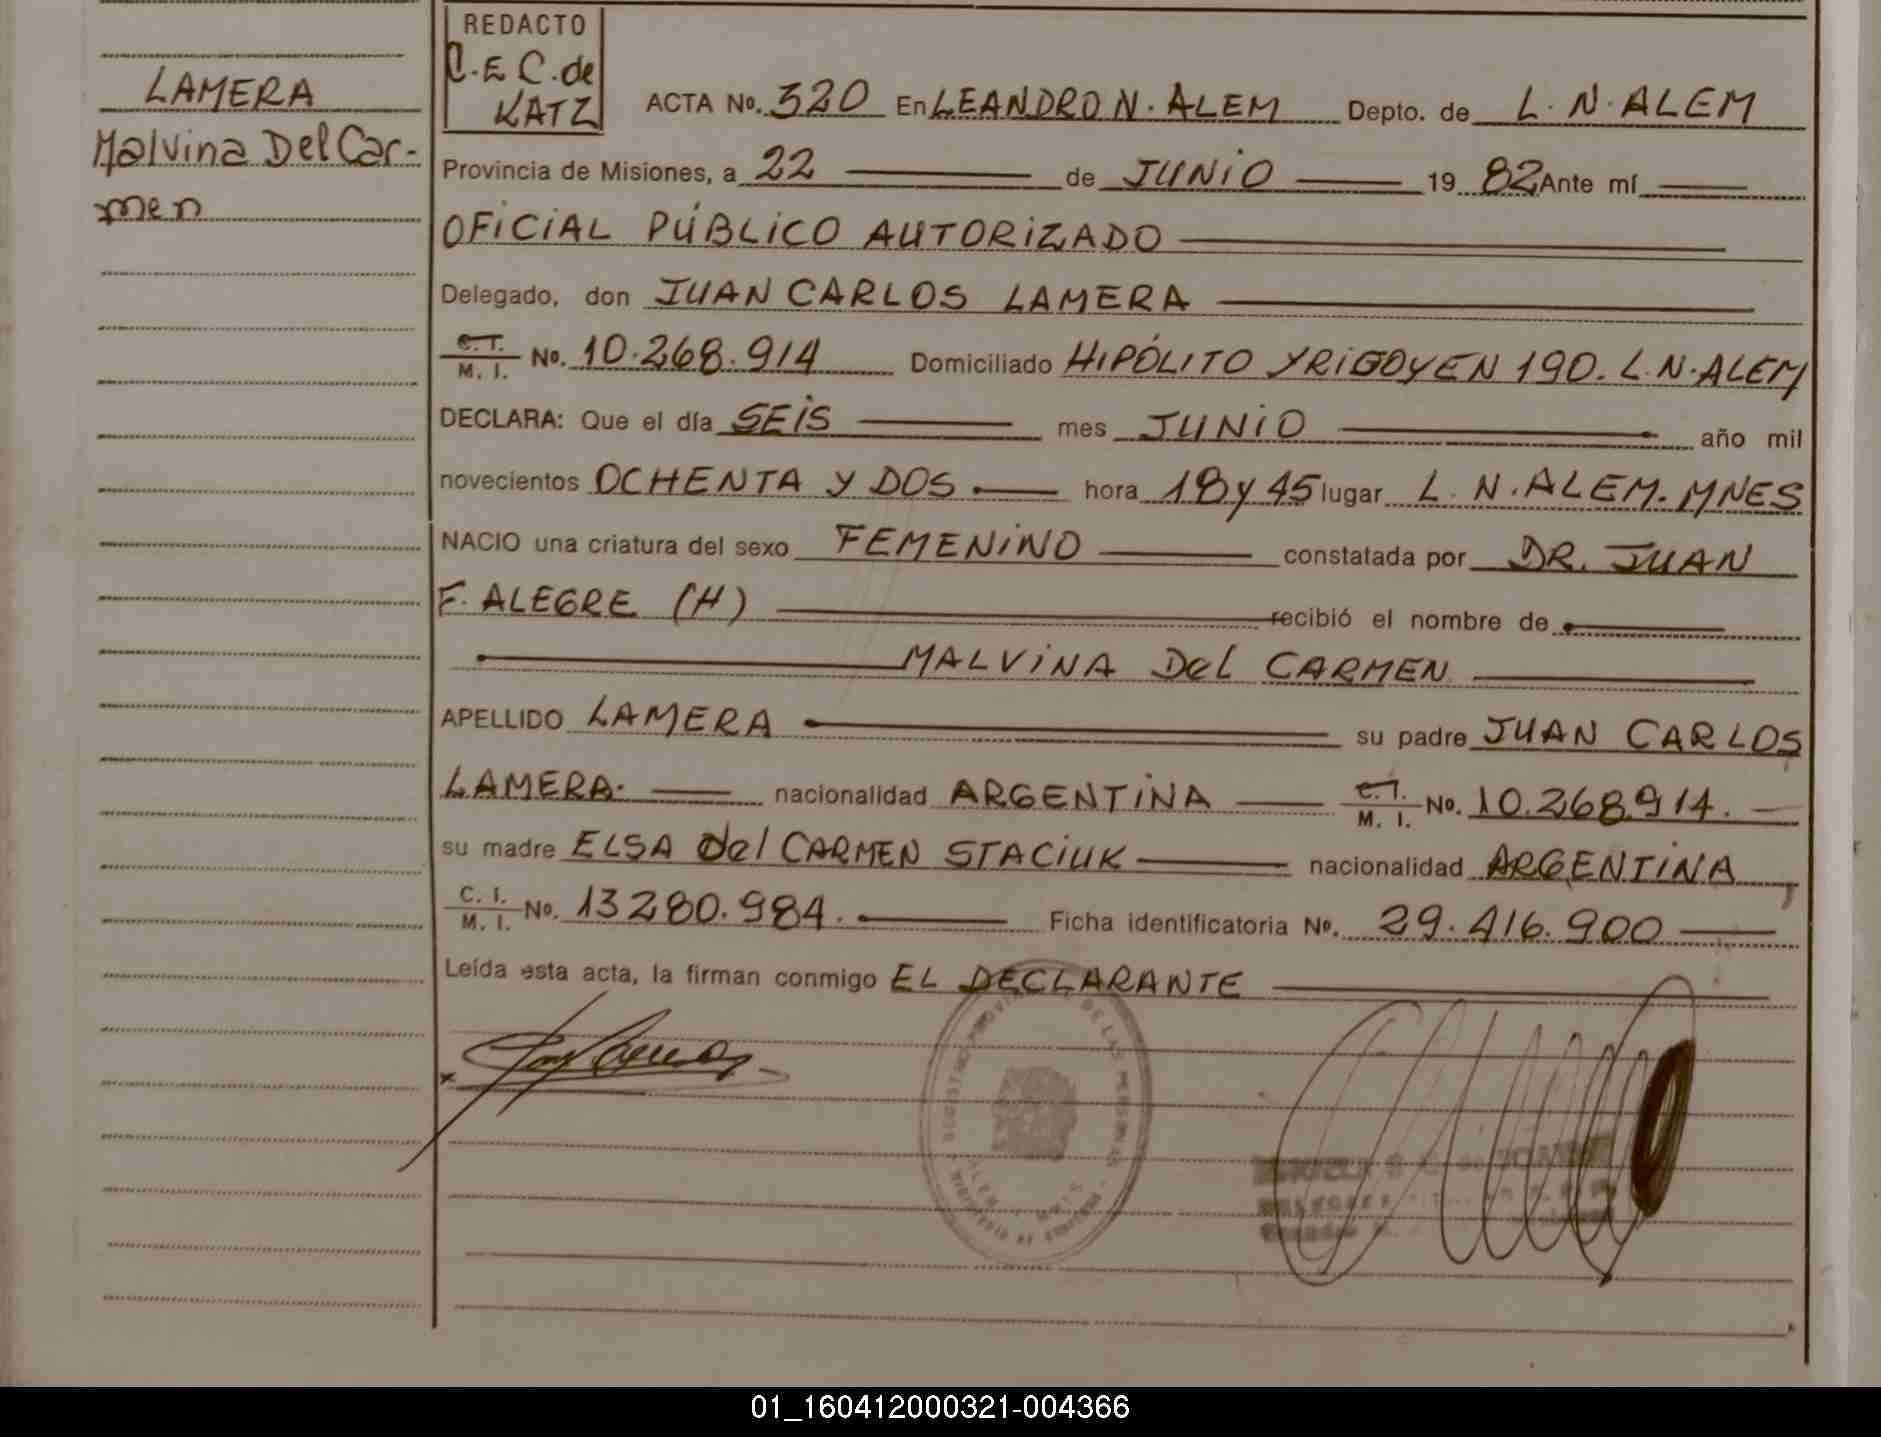 LAMERA
Malvina Del Car-
men
REDACTO
C.E C. de
KATZ
ACTA No. 320 En LEANDRO N. ALEM Depto. de L. N. ALEM
Provincia de Misiones, a 22 de JUNiO 19 82 Ante mí
OFiCiAL PÚBLiCO AUTORiZADO
Delegado, don JUAN CARLOS LAMERA
C.I. M. I. No. 10.268.914 Domiciliado HiPÓLiTO YRiGOYEN 190. L.N.ALEM
DECLARA: Que el día SEiS mes JUNiO año mil
novecientos OCHENTA Y DOS hora 18 y 45 lugar L. N. ALEM. MNES
NACIO una criatura del sexo FEMENiNO constatada por DR. JUAN
F. ALEGRE (H) recibió el nombre de
MALViNA Del CARMEN
APELLIDO LAMERA su padre JUAN CARLOS
LAMERA. nacionalidad ARGENTiNA C.I. M. I. No. 10.268.914.
su madre ELSA del CARMEN STACiUK nacionalidad ARGENTiNA
C. I. M. I. No. 13280.984. Ficha identificatoria No. 29.416.900
Leída esta acta, la firman conmigo EL DECLARANTE
DE LAS PERSONAS
01_160412000321-004366